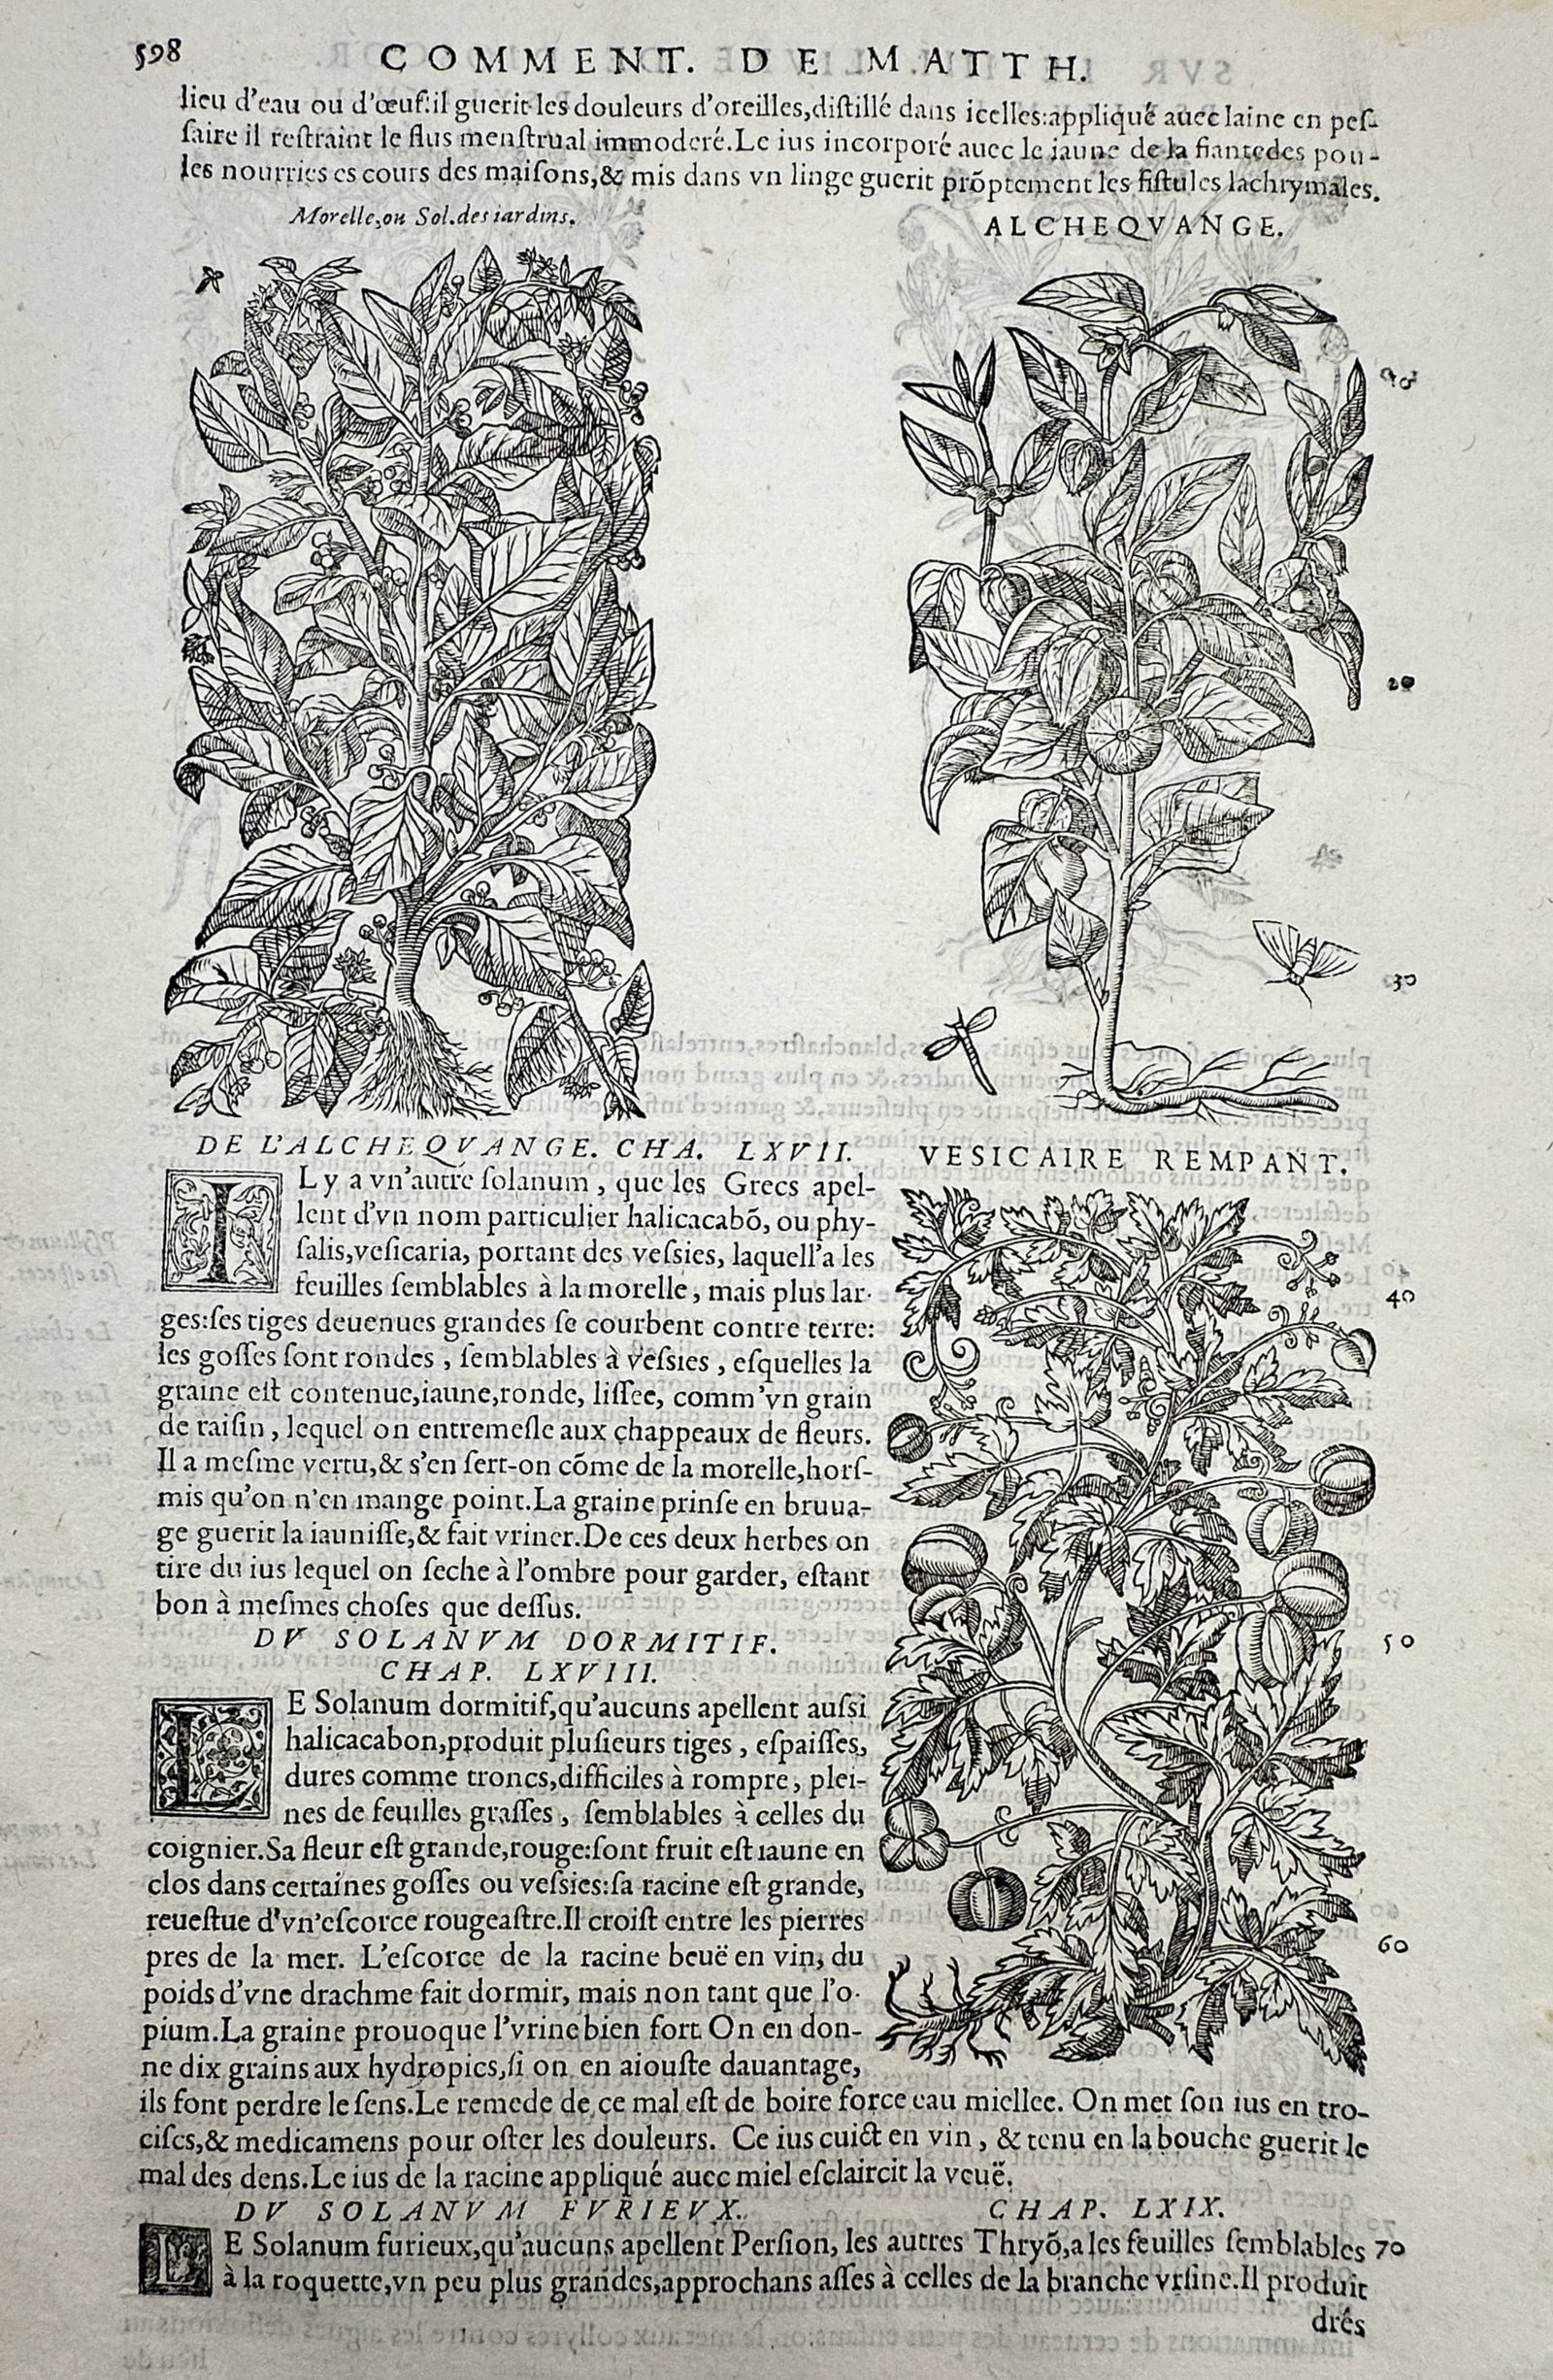 598 COMMENT. DE MATTH.
lieu d'eau ou d'œuf:il guerit les douleurs d'oreilles,distillé dans icelles:appliqué auec laine en pes-
saire il restraint le flus menstrual immoderé.Le ius incorporé auec le iaune de la fiantedes pou-
les nourries es cours des maisons,& mis dans vn linge guerit prõptement les fistules lachrymales.
Morelle,ou Sol.des iardins.
ALCHEQVANGE.
20
30
DE L'ALCHEQVANGE. CHA. LXVII.
IL y a vn'autre solanum, que les Grecs apel-
lent d'vn nom particulier halicacabõ, ou phy-
salis,vesicaria, portant des vessies, laquell'a les
feuilles semblables à la morelle, mais plus lar-
ges:ses tiges deuenues grandes se courbent contre terre:
les gosses sont rondes, semblables à vessies, esquelles la
graine est contenue,iaune,ronde, lissee, comm'vn grain
de raisin, lequel on entremesle aux chappeaux de fleurs.
Il a mesme vertu,& s'en sert-on cõme de la morelle,hors-
mis qu'on n'en mange point.La graine prinse en bruua-
ge guerit la iaunisse,& fait vriner.De ces deux herbes on
tire du ius lequel on seche à l'ombre pour garder, estant
bon à mesmes choses que dessus.
VESICAIRE REMPANT.
40
50
60
DV SOLANVM DORMITIF.
CHAP. LXVIII.
LE Solanum dormitif,qu'aucuns apellent aussi
halicacabon,produit plusieurs tiges, espaisses,
dures comme troncs,difficiles à rompre, plei-
nes de feuilles grasses, semblables à celles du
coignier.Sa fleur est grande,rouge:sont fruit est iaune en
clos dans certaines gosses ou vessies:sa racine est grande,
reuestue d'vn'escorce rougeastre.Il croist entre les pierres
pres de la mer. L'escorce de la racine beuë en vin, du
poids d'vne drachme fait dormir, mais non tant que l'o-
pium.La graine prouoque l'vrine bien fort On en don-
ne dix grains aux hydropics,si on en aiouste dauantage,
ils font perdre le sens.Le remede de ce mal est de boire force eau miellee. On met son ius en tro-
cisces,& medicamens pour oster les douleurs. Ce ius cuict en vin, & tenu en la bouche guerit le
mal des dens.Le ius de la racine appliqué auec miel esclaircit la veuë.
DV SOLANVM FVRIEVX. CHAP. LXIX.
LE Solanum furieux,qu'aucuns apellent Persion, les autres Thryõ,a les feuilles semblables 70
à la roquette,vn peu plus grandes,approchans asses à celles de la branche vrsine.Il produit
drés